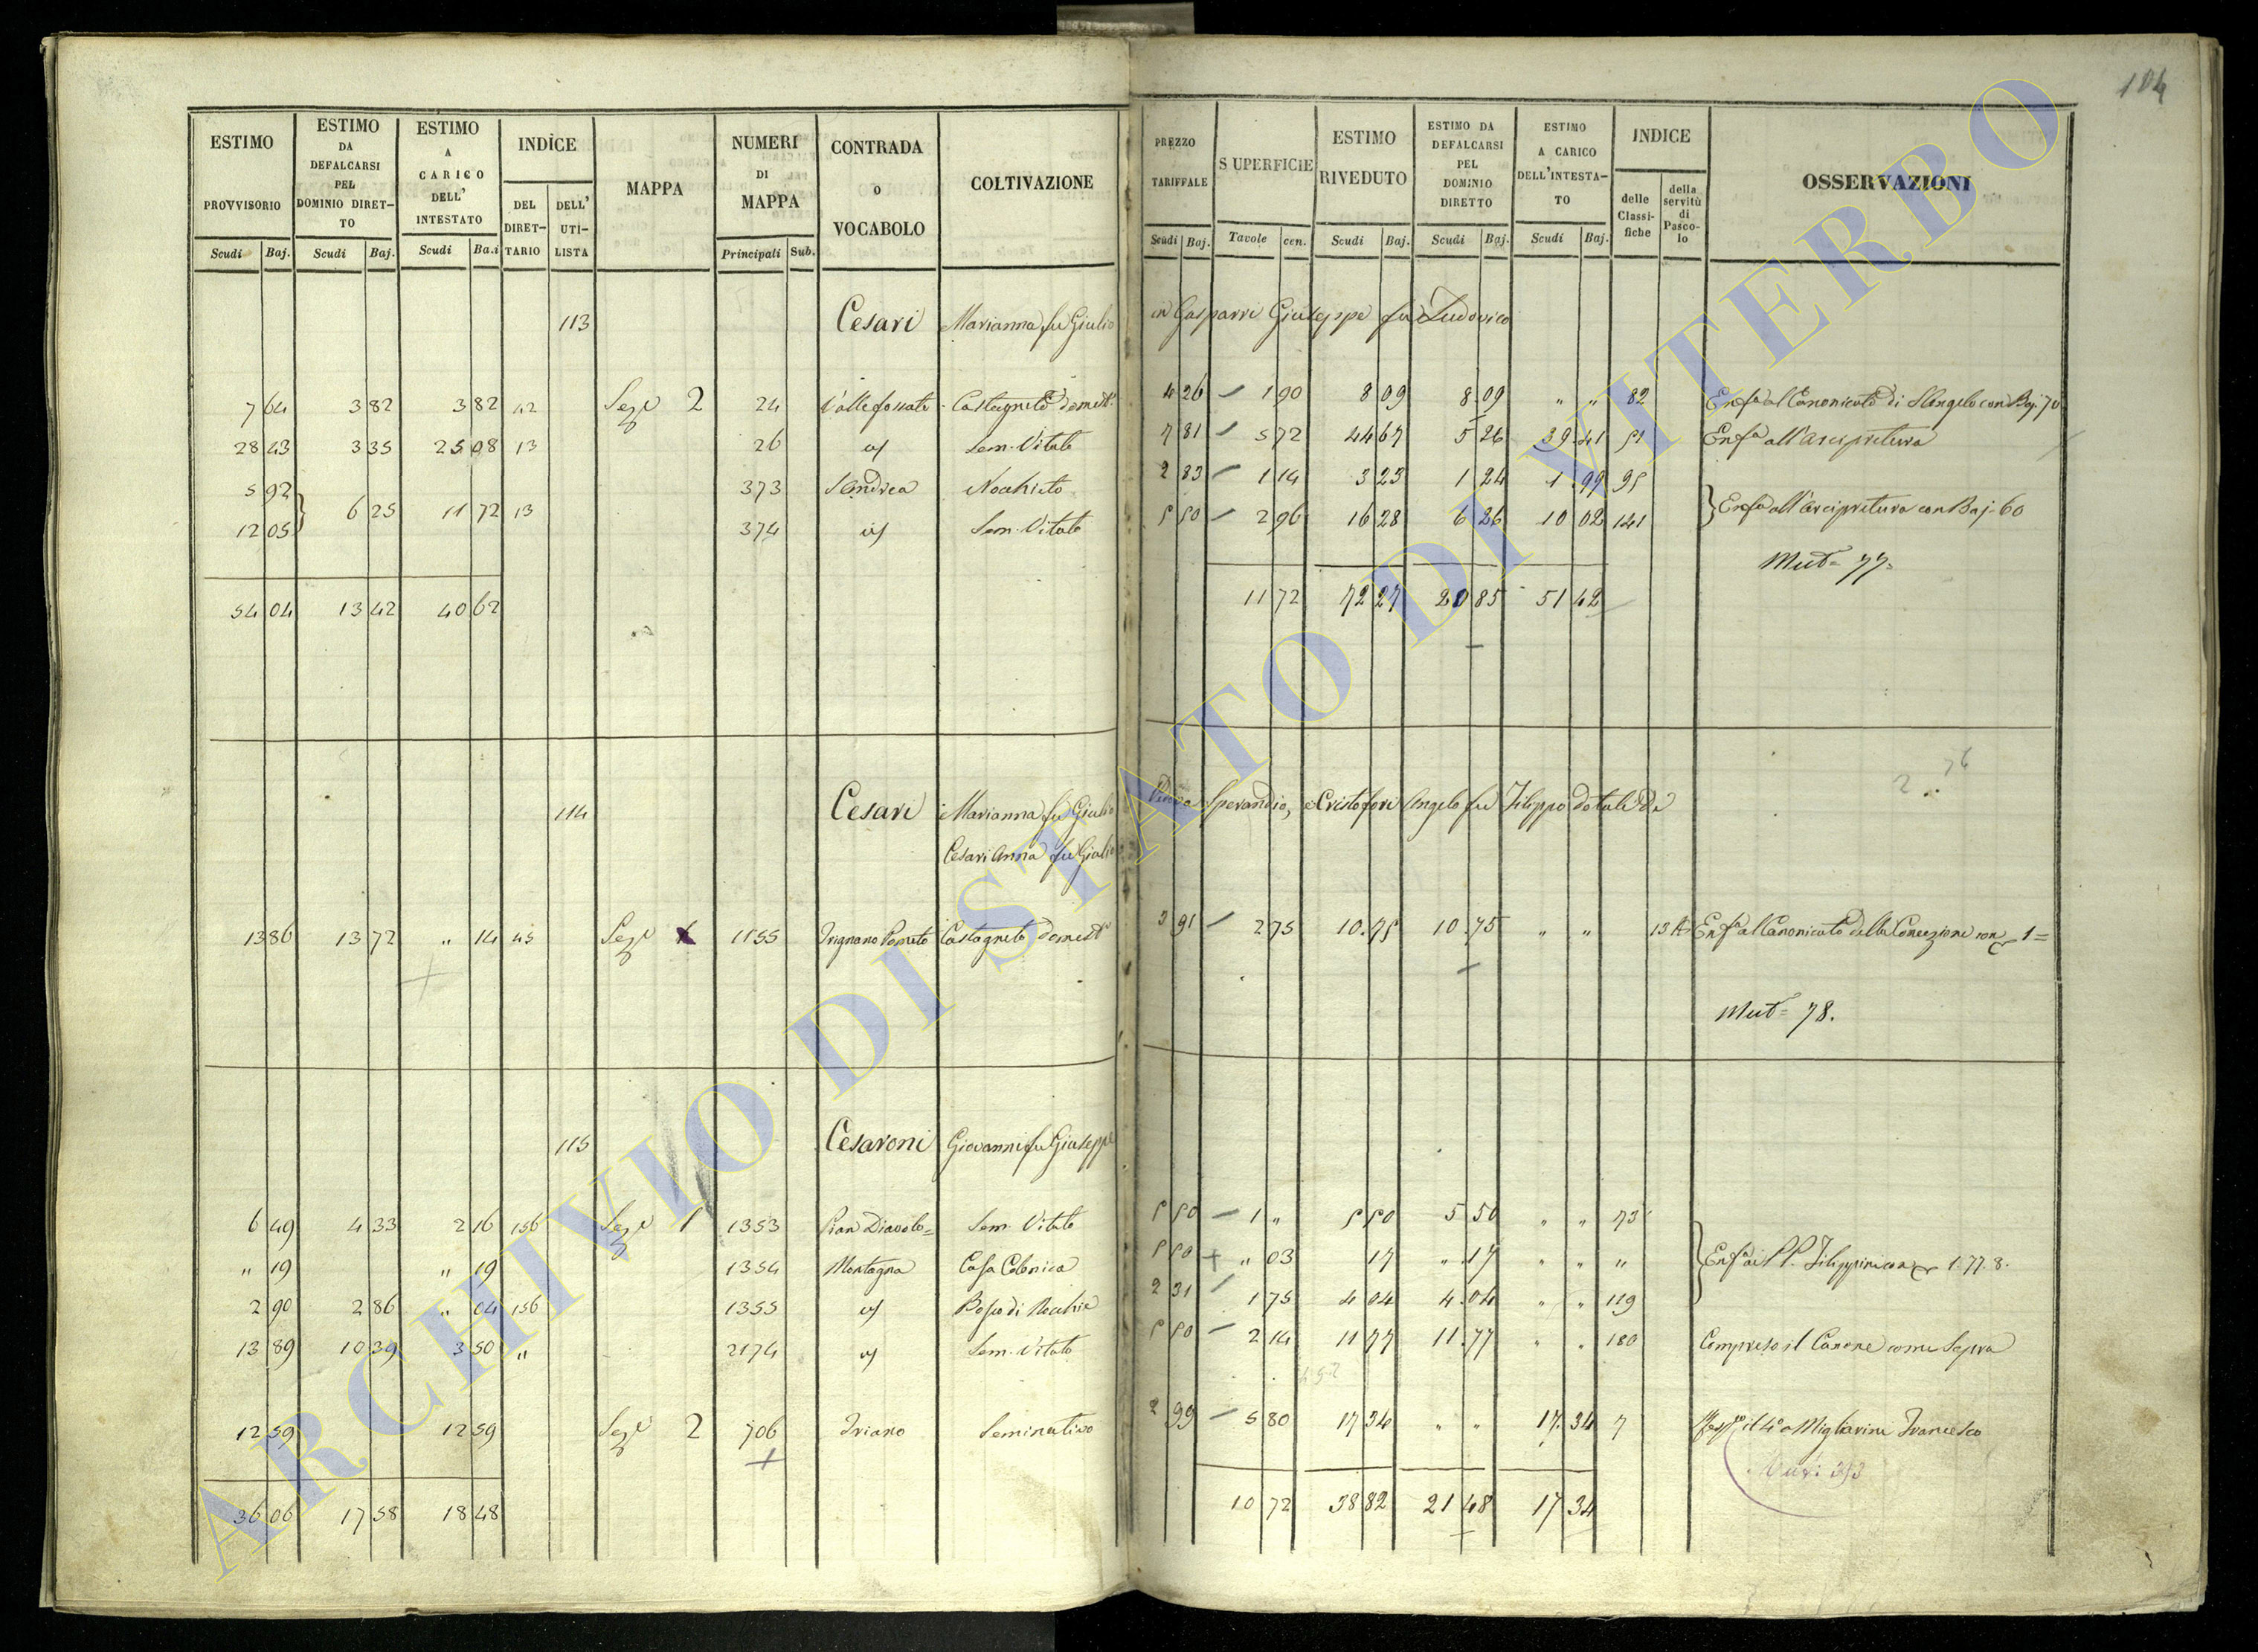 104
ESTIMO PROVVISORIO Scudi Baj. | ESTIMO DA DEFALCARSI PEL DOMINIO DIRETTO Scudi Baj. | ESTIMO A CARICO DELL' INTESTATO Scudi Ba.i | INDICE DEL DIRETTARIO DELL' UTILISTA | MAPPA | NUMERI DI MAPPA Principali Sub. | CONTRADA O VOCABOLO | COLTIVAZIONE | PREZZO TARIFFALE Scudi Baj. | SUPERFICIE Tavole cen. | ESTIMO RIVEDUTO Scudi Baj. | ESTIMO DA DEFALCARSI PEL DOMINIO DIRETTO Scudi Baj. | ESTIMO A CARICO DELL'INTESTATO Scudi Baj. | INDICE delle Classifiche della servitù di Pascolo | OSSERVAZIONI
113 Cesari Marianna fu Giulio in Gasparri Giuseppe fu Ludovico
7 64 3 82 3 82 42 Seze 2 24 Vallefossate Castagneto domest. 4 26 1 90 8 09 8 09 " " 82 Enfa al Canonicato di S Angelo con Baj. 70
28 43 3 35 25 08 13 26 id Sem. Vitato 7 81 5 72 44 67 5 26 39 41 51 Enfa all'arcipretura
5 92 373 S Andrea Nochieto 2 83 1 14 3 23 1 24 1 99 95
6 25 11 72 13 Enfa all'arcipretura con Baj. 60
12 05 374 id Sem. Vitato 5 50 2 96 16 28 6 26 10 02 141
Mut= 77.
54 04 13 42 40 62 11 72 72 27 20 85 51 42
2 76
114 Cesari Marianna fu Giulio Sperandio, e Cristofori Angelo fu Filippo dotale di
Cesari Anna fu Giulio
13 86 13 72 " 14 45 Seze 1155 Trignano Poppeto Castagneto domest. 3 91 2 75 10.75 10.75 " " 13 Enfa al Canonicato della Concezione con 1=
Mut= 78.
115 Cesaroni Giovanni fu Giuseppe
6 49 4 33 2 16 156 Seze 1 1353 Pian Diavolo= Sem. Vitato 5 50 1 " 5 50 5 50 " " 73
" 19 " 19 1354 Montagna Casa Colonica 5 50 " 03 17 " 17 " " " Enfa ai PP. Filippini con 1.77.8.
2 90 2 86 " 04 156 1355 id Bosco di Rochie 2 31 1 75 4 04 4.04 " " 119
13 89 10 39 3 50 " 2174 id Sem. Vitato 5 50 2 14 11 77 11.77 " " 180 Compreso il Canone come Sopra
12 59 12 59 Seze 2 706 Triano Seminativo 2 99 5 80 17 34 " " 17.34 7 Migliarini Francesco
36 06 17 58 18 48 10 72 38 82 21 48 17 34
ARCHIVIO DI STATO DI VITERBO